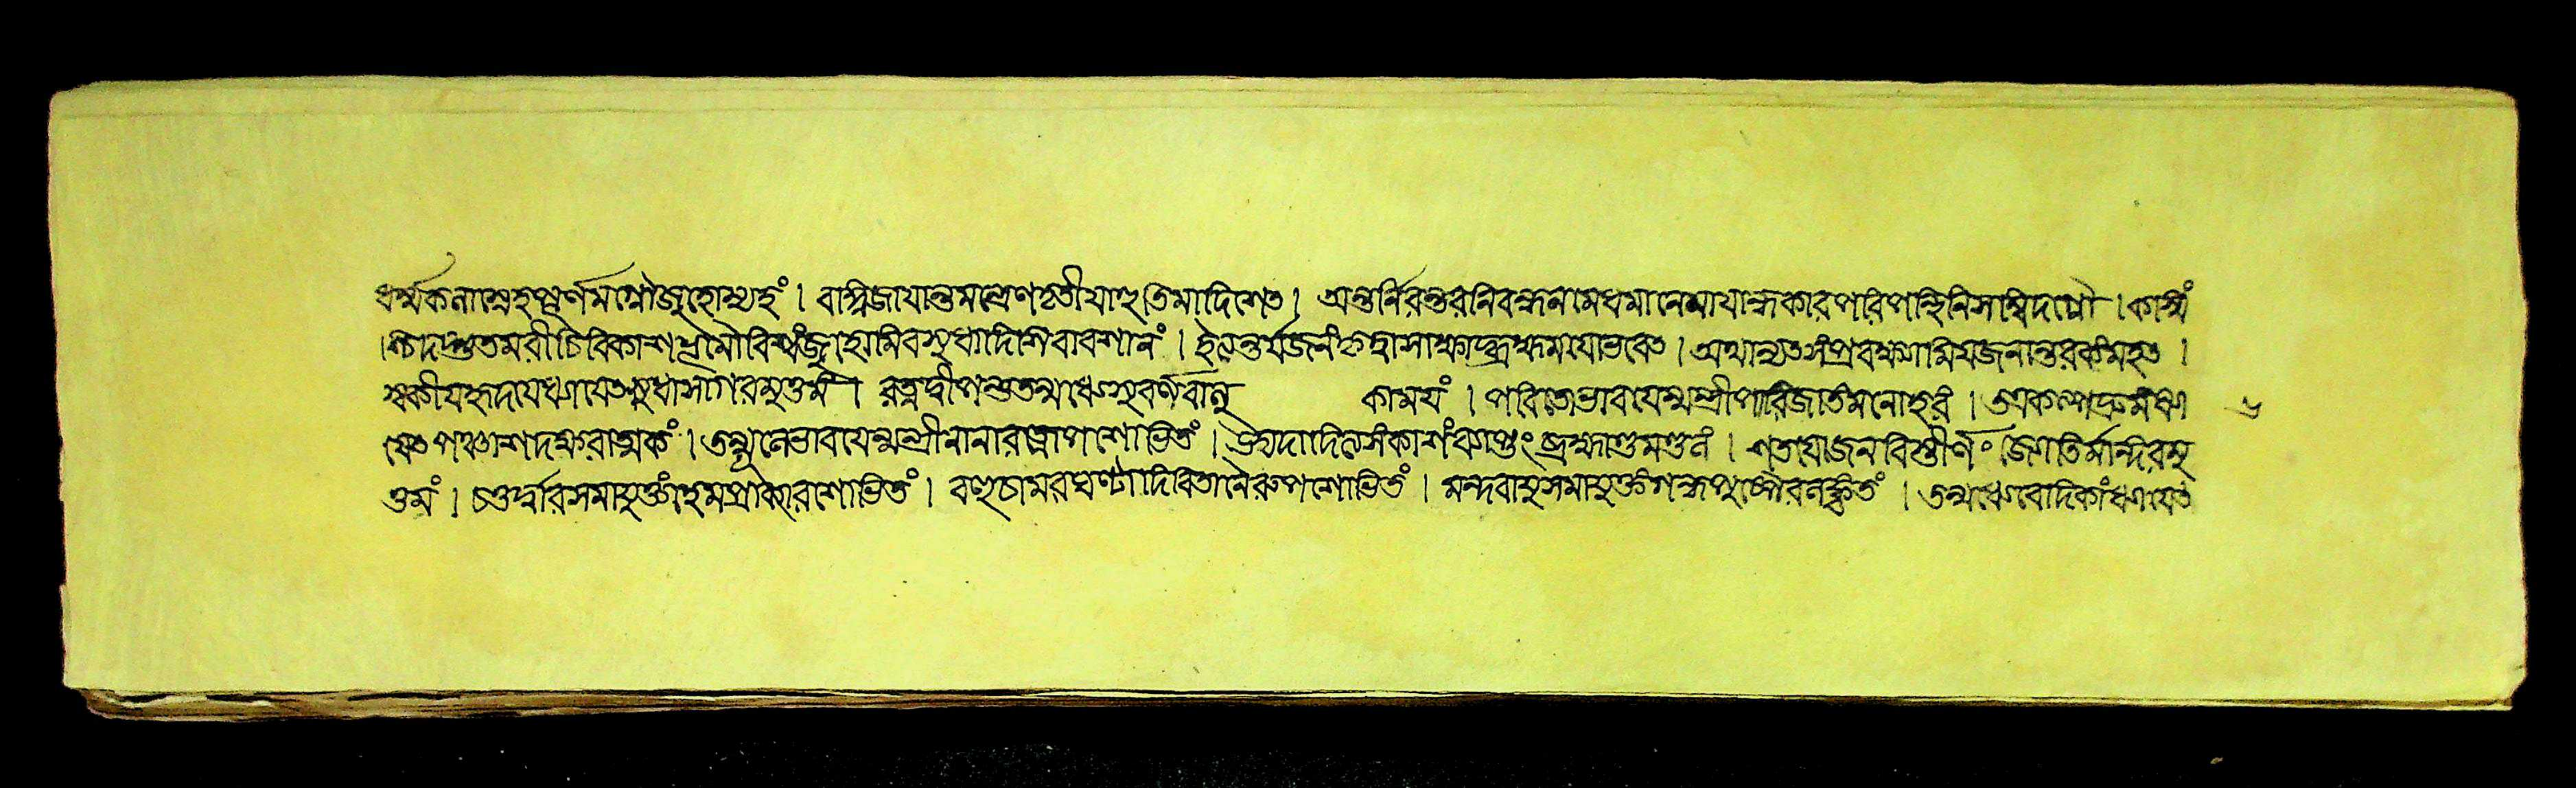 ধর্ম্মকলাস্নেহপূর্ণমগ্নৌজুহোম্যহং । বাগ্বিজাযান্তমন্ত্রেণতৃতীযাহুতিমাদিশেত । অন্তর্নিরন্তরনিবন্ধনমেধমানেমাযান্ধকারপরিপন্থিনিসম্বিদগ্নৌ । কস্মিং
শ্চিদদ্ভুতমরীচিবিকাশভূমৌবিশ্বংজুহোমিবসুধাদিশিবাবশানং । ইত্যন্তর্যজনংকৃত্বাসাক্ষাদ্ব্রহ্মমযোভবেত । অথান্যতসংপ্রবক্ষ্যামিযজনান্তরকংমহত ।
স্বকীযহৃদযেধ্যাযেতসুধাসাগরমুত্তমং । রত্নদ্বীপন্তুতন্মধ্যেসুবর্ণবালু কাময়ং । পরিতোভাবযেন্মন্ত্রীপারিজাতংমনোহরং । তত্রকল্পদ্রুমংধ্যা
যেতপঞ্চাশদক্ষরাত্মকং । তন্মূলেভাবযেন্মন্ত্রীনানারত্নোপশোভিতং । উদ্যদাদিত্যসংকাশংব্যাপ্তংব্রহ্মাণ্ডমণ্ডলং । শতযোজনবিস্তীর্ণং জ্যোতির্মন্দিরমু
ত্তমং । চতুর্দ্বারসমাযুক্তংহেমপ্রাকারশোভিতং । বহুচামরঘণ্টাদিবিতানৈরুপশোভিতং । মন্দবাযুসমাযুক্তংগন্ধপুষ্পৈরলঙ্কৃতং । তন্মধ্যেবেদিকাংধ্যাযেত